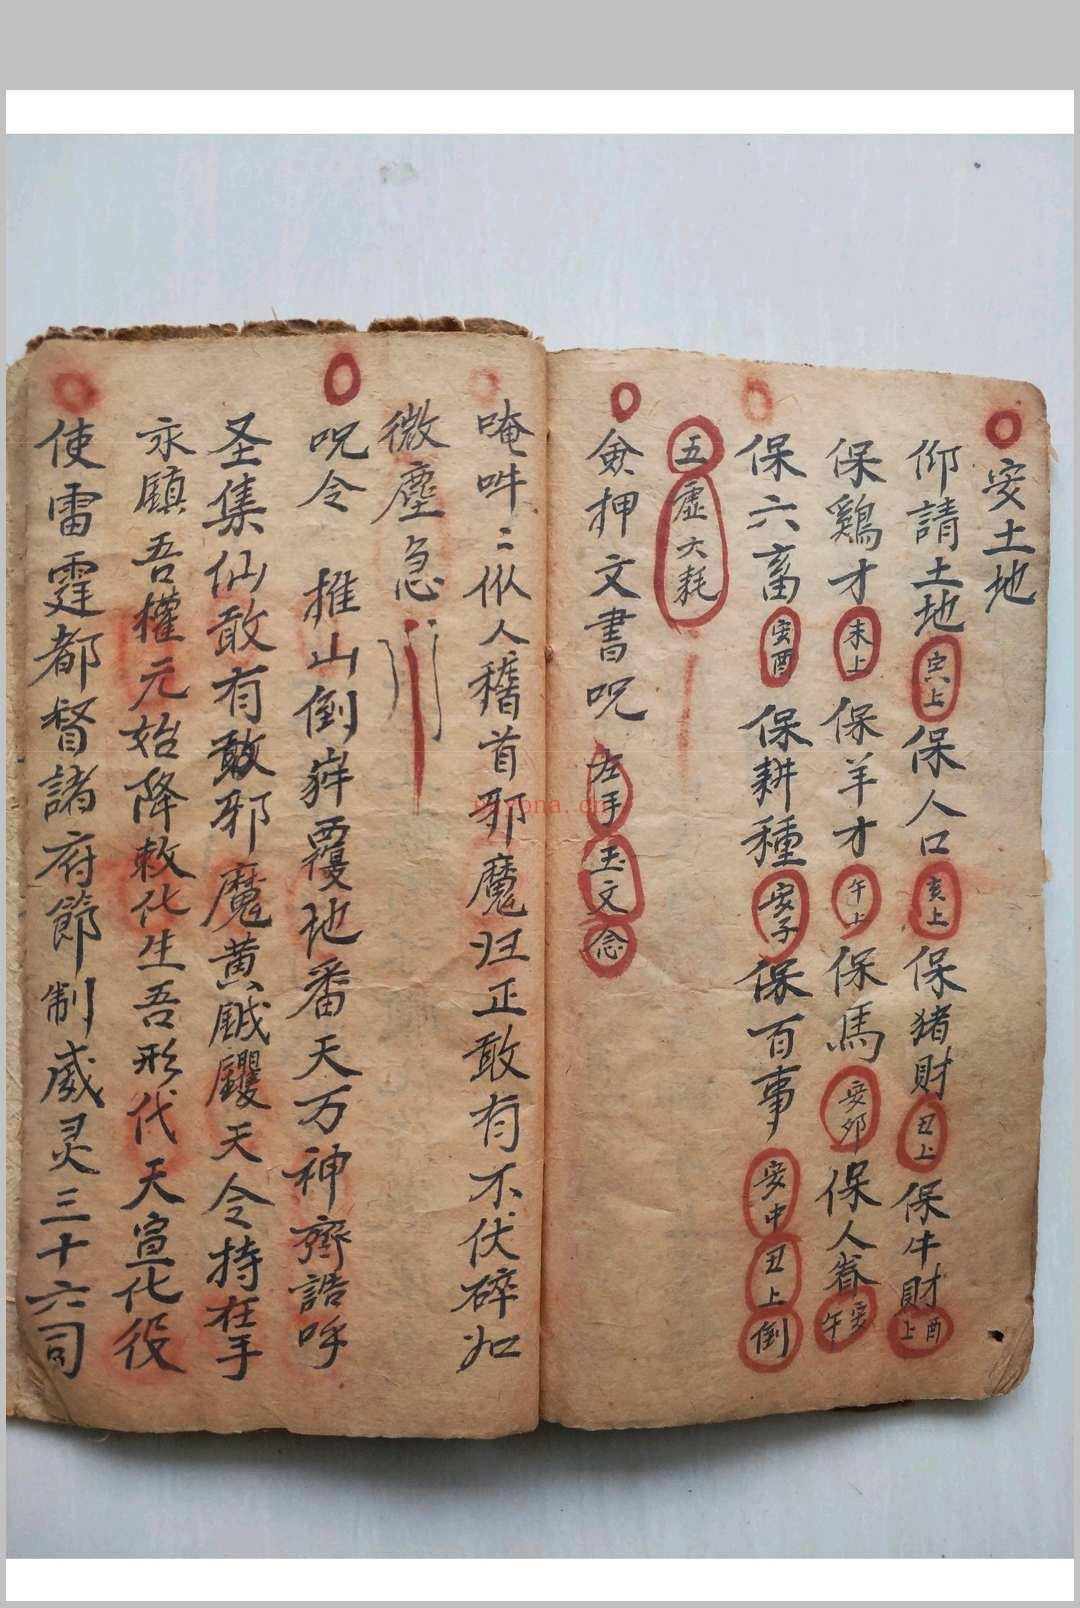 安土地
仰請土地寅上保人口亥上保猪財丑上保牛財酉上
保鷄才未上保羊才午上保馬安卯保人眷安午
保六畜安酉保耕種安子保百事安中丑上倒
五虛六耗
僉押文書呪左手玉文念
唵吽〻仈人稽首邪魔归正敢有不伏碎如
微塵急
呪令 推山倒嶭覆地番天万神齊誥呼
圣集仙敢有敢邪魔黄鉞钁天令持在手
永鎮吾權元始降敕化生吾形代天宣化役
使雷霆都督諸府節制威灵三十六司
nayona.cn